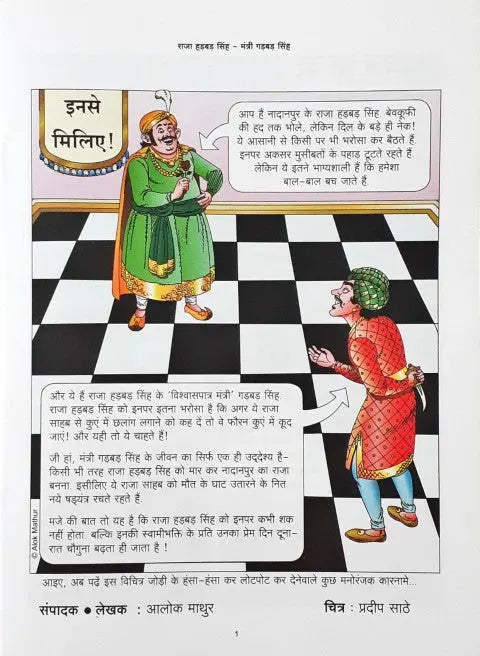 राजा हड़बड़ सिंह - मंत्री गड़बड़ सिंह
इनसे
मिलिए!
आप हैं नादानपुर के राजा हड़बड़ सिंह. बेवकूफी
की हद तक भोले, लेकिन दिल के बड़े ही नेक!
ये आसानी से किसी पर भी भरोसा कर बैठते हैं.
इनपर अकसर मुसीबतों के पहाड़ टूटते रहते हैं.
लेकिन ये इतने भाग्यशाली हैं कि हमेशा
बाल-बाल बच जाते हैं.
और ये हैं राजा हड़बड़ सिंह के 'विश्वासपात्र मंत्री' गड़बड़ सिंह.
राजा हड़बड़ सिंह को इनपर इतना भरोसा है कि अगर ये राजा
साहब से कुएं में छलांग लगाने को कह दें तो वे फौरन कुएं में कूद
जाएं! और यही तो ये चाहते हैं!
जी हां, मंत्री गड़बड़ सिंह के जीवन का सिर्फ एक ही उद्देश्य है-
किसी भी तरह राजा हड़बड़ सिंह को मार कर नादानपुर का राजा
बनना. इसीलिए ये राजा साहब को मौत के घाट उतारने के नित
नये षड्यंत्र रचते रहते हैं.
मजे की बात तो यह है कि राजा हड़बड़ सिंह को इनपर कभी शक
नहीं होता. बल्कि इनकी स्वामीभक्ति के प्रति उनका प्रेम दिन दूना-
रात चौगुना बढ़ता ही जाता है !
© Alok Mathur
आइए, अब पढ़ें इस विचित्र जोड़ी के हंसा-हंसा कर लोटपोट कर देनेवाले कुछ मनोरंजक कारनामे...
संपादक ● लेखक : आलोक माथुर
चित्र : प्रदीप साठे
1